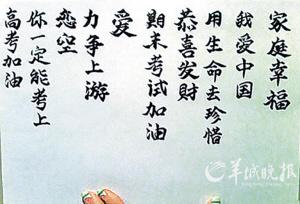 家庭幸福
我爱中国
用生命去珍惜
恭喜发财
期末考试加油
爱
力争上游
恋空
你一定能考上
高考加油
羊城晚报